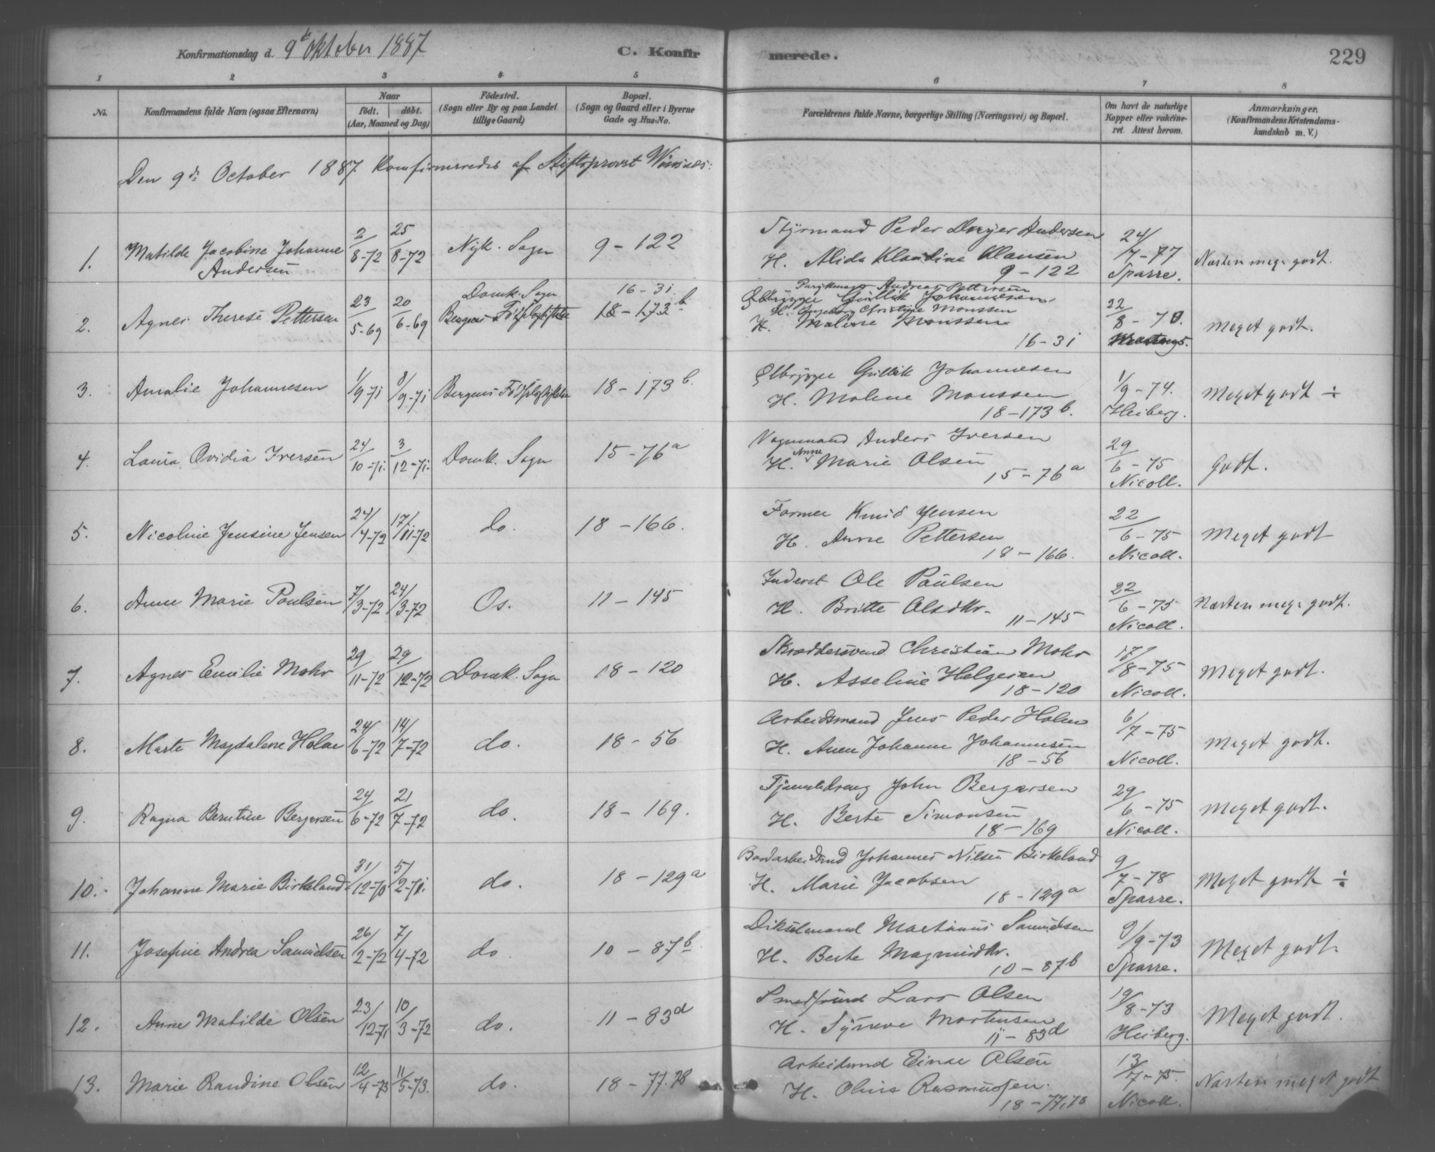 Konfirmationsdag d. 9de Oktober 1887
C. Konfirmerede.
229
1 2 3 4 5 6 7 8
No.
Konfirmandens fulde Navn (ogsaa Efternavn)
Naar
født. døbt.
(Aar, Maaned og Dag)
Fødested.
(Sogn eller By og paa Landet
tillige Gaard)
Bopæl.
(Sogn og Gaard eller i Byerne
Gade og Hus-No.
Forældrenes fulde Navne, borgerlige Stilling (Næringsvei) og Bopæl.
Om havt de naturlige
Kopper eller vakcine-
ret. Attest herom.
Anmærkninger.
(Konfirmandens Kristendoms-
kundskab m. V.)
Den 9de October 1887 konfirmeredes af Stiftsprovst
1. Matilde Jacobine Johanne
Andersen
2/8-72 25/8-72 Nyk. Sogn 9 - 122
Styrmand Peder Andersen
H. Alida Klausen
9 - 122
24/7-77
Sparre.
Næsten meget godt.
2. Agnes Therese Pettersen
23/5-69 20/6-69
Domk. Sogn
Bergens Fødselsstiftelse
16-31
18-173 b
Andreas Pettersen
Ølbrygger Gullik Johannesen
H. Christine Monssen
H. Malene Monssen
16-31
22/8-70.
Meget godt.
3. Amalie Johannesen
1/9-71 8/9-71 Bergens Fødselsstiftelse 18-173 b.
Ølbrygger Gullik Johannesen
H. Malene Monssen
18-173 b.
1/9-74.
Heiberg.
Meget godt ÷
4. Laura Ovidia Iversen
24/10-71 3/12-71. Domk. Sogn 15-76 a
Vognmand Anders Iversen
H. Anna Marie Olsen
15-76 a
29/6-75
Nicoll.
Godt.
5. Nicoline Jensine Jensen
24/4-72 17/11-72 do. 18-166.
Former Knud Jensen
H. Anne Pettersen
18-166.
22/6-75
Nicoll.
Meget godt
6. Anne Marie Poulsen
7/3-72 24/3-72 Os. 11-145
Inderst Ole Poulsen
H. Britte Olsdtr.
11-145
22/6-75
Nicoll.
Næsten meget godt.
7. Agnes Emilie Mohr
29/11-72 29/12-72 Domk. Sogn 18-120
Skræddersvend Christian Mohr
H. Asseline Helgesen
18-120
17/8-75
Nicoll.
Meget godt.
8. Marte Magdalene Holm
24/6-72 14/7-72 do. 18-56
Arbeidsmand Jens Peder Holm
H. Anne Johanne Johannesen
18-56
6/7-75
Nicoll.
Meget godt.
9. Ragna Berntine Bergersen
24/6-72 21/7-72 do. 18-169.
John Bergersen
H. Berte Simonsen
18-169
29/6-75
Nicoll.
Meget godt.
10. Johanne Marie Birkeland
31/12-70 5/2-71. do. 18-129 a
Johannes Nilsen Birkeland
H. Marie Jacobsen
18-129 a
9/7-78
Sparre.
Meget godt ÷
11. Josefine Andrea Samuelsen
26/2-72 7/4-72 do. 10-87 b.
Martinus Samuelsen
H. Berte Magnusdtr.
10-87 b
9/9-73
Sparre.
Meget godt.
12. Anne Matilde Olsen
23/12-71 10/3-72 do. 11-83 d
Smedsvend Lars Olsen
H. Synneve Mortensen
11-83 d
19/8-73
Heiberg.
Meget godt.
13. Marie Randine Olsen
12/4-73 11/5-73. do. 18-77.78
Arbeidsmd Einar Olsen
H. Oline Rasmussen.
18-77,78
13/7-75.
Nicoll.
Næsten meget godt